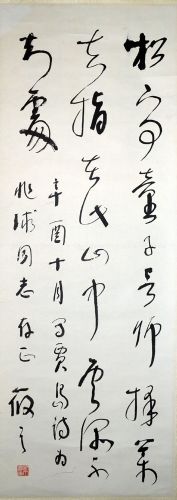 松下问童子言师採药
去指在此山中云深不
知處
辛酉十月写贾岛诗为
兆球同志存正 筱之